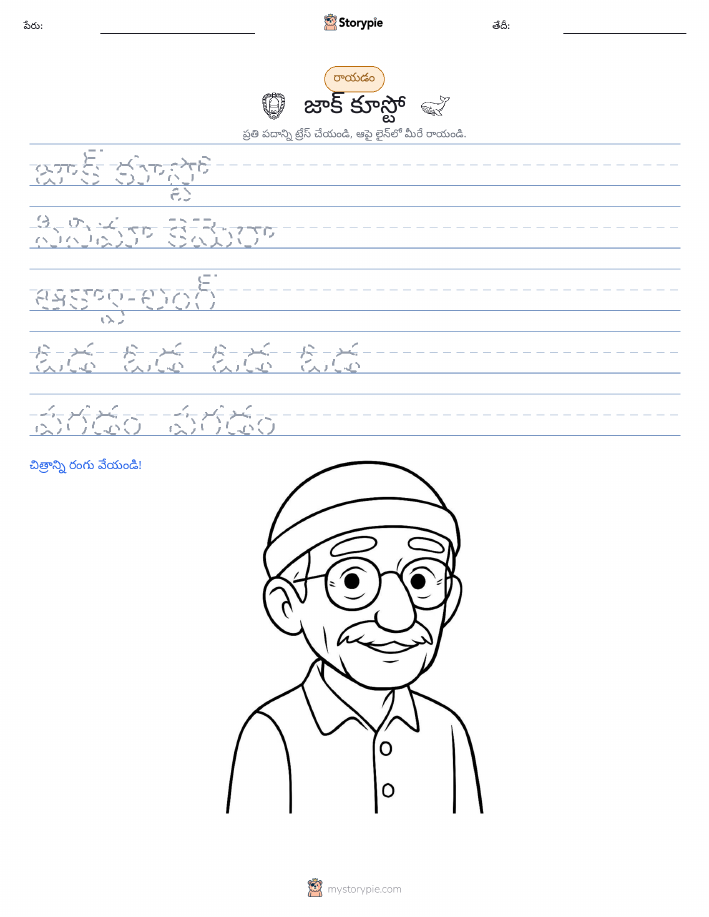 పేరు:
Storypie
తేదీ:
రాయడం
జాక్ కూస్టో
ప్రతి పదాన్ని ట్రేస్ చేయండి, ఆపై లైన్‌లో మీరే రాయండి.
జాక్ కూస్టో
సినిమా కెమెరా
ఆక్వా-లంగ్
ఓడ ఓడ ఓడ ఓడ
పగడం పగడం
చిత్రాన్ని రంగు వేయండి!
mystorypie.com